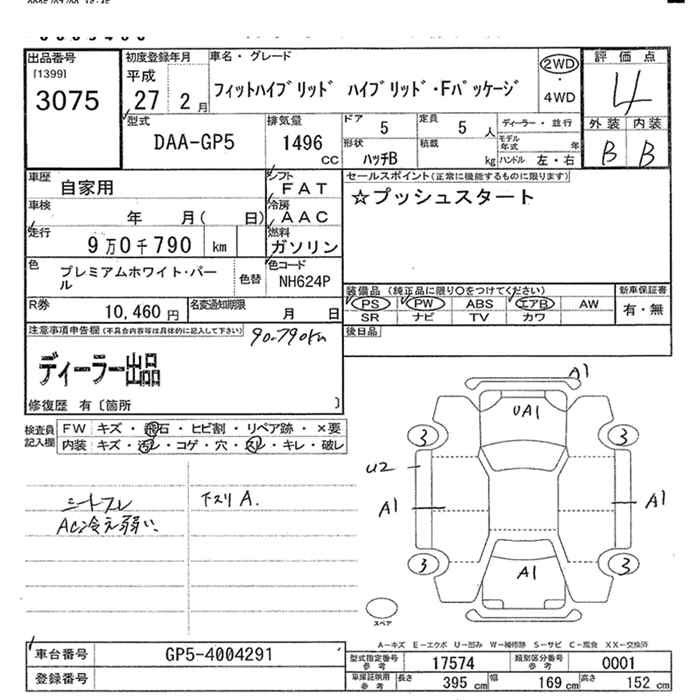 出品番号
[1399]
3075
初度登録年月
平成
27 2月
車名・グレード
フィットハイブリッド ハイブリッド・Fパッケージ
2WD
・
4WD
評価点
4
外装 内装
B B
型式
DAA-GP5
排気量
1496
CC
ドア
5
定員
5人
形状
ハッチB
積載
kg
ディーラー・並行
モデル年式 年
ハンドル 左・右
車歴
自家用
シフト
FAT
車検
年 月( 日)
冷房
AAC
走行
9万0千790 km
燃料
ガソリン
色
プレミアムホワイト・パール
色替
色コード
NH624P
R券
10,460円
名変通知期限
月 日
セールスポイント(正常に機能するものに限ります)
☆プッシュスタート
装備品(純正品に限り○をつけてください)
PS PW ABS エアB AW
SR ナビ TV カワ
新車保証書
有・無
後日品
注意事項申告欄(不具合内容等は具体的に記入して下さい)
90.790km
ディーラー出品
修復歴 有〔箇所 〕
検査員記入欄
FW キズ・飛石・ヒビ割・リペア跡・×要
内装 キズ・汚レ・コゲ・穴・スレ・キレ・破レ
シートスレ
AC冷え弱い、
下スリ A.
A1
UA1
3 3
U2
A1 A1
3 3
A1
スペア
A-キズ E-エクボ U-凹み W-補修跡 S-サビ C-腐食 XX-交換済
車台番号
GP5-4004291
登録番号
型式指定番号参考
17574
類別区分番号参考
0001
車庫証明用参考
長さ 395cm 幅 169cm 高さ 152cm